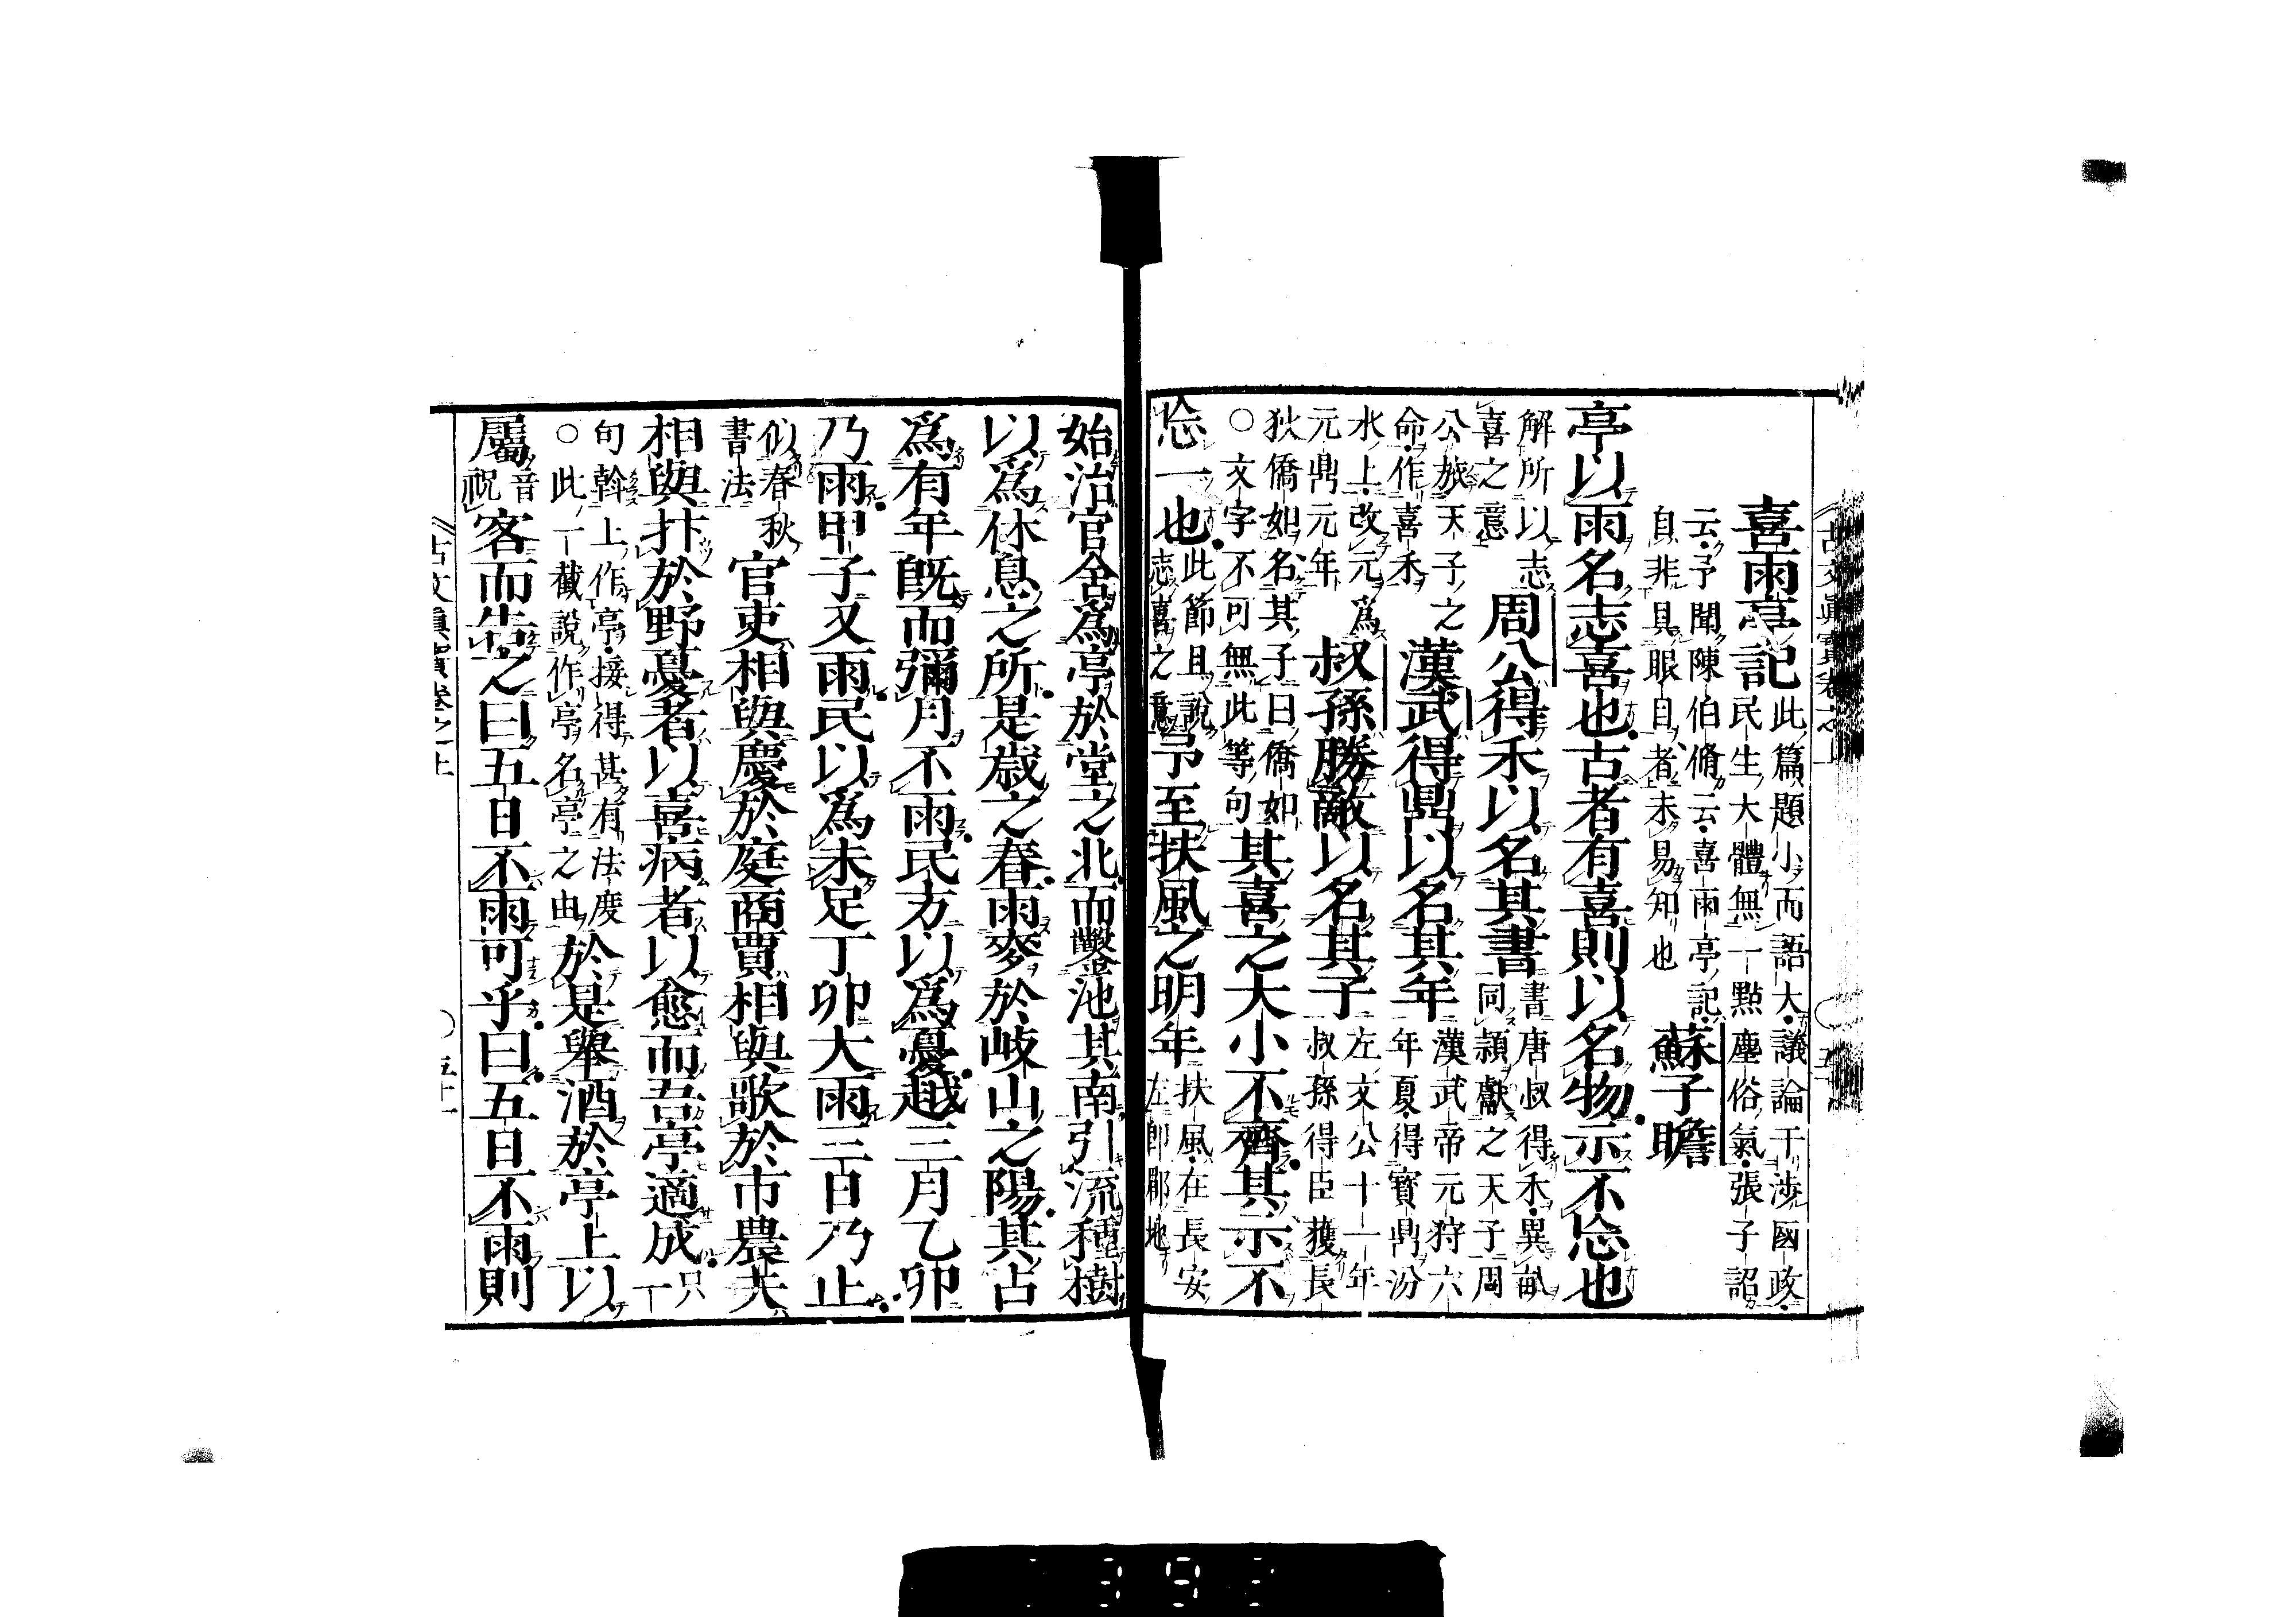 古文眞寶卷之上
喜雨亭記此篇題小而語大議論干渉國政
民生大體無一點塵俗氣張子詔
云予聞陳伯脩云喜雨亭記
自非具眼目者未易知也
蘇子瞻
亭以雨名志喜也古者有喜則以名物示不忘也
解所以志
喜之意
周公得禾以名其書
書唐叔得禾異畝
同頴獻之天子周
公旅天子之
命作喜禾
漢武得鼎以名其年
漢武帝元狩六
年夏得寳鼎汾
水上改元爲
元鼎元年
叔孫勝敵以名其子
左文公十一年
叔孫得臣獲長
狄僑如名其子曰僑如
○文字不可無此等句
其喜之大小不齊其示不
忘一也
此節且說
志喜之意
予至扶風之明年
扶風在長安
左即郡地
始治官舍爲亭於堂之北而鑿池其南引流種樹
以爲休息之所是歲之春雨麥於岐山之陽其占
爲有年旣而彌月不雨民方以爲憂越三月乙卯
乃雨甲子又雨民以爲未足丁卯大雨三日乃止
似春秋
書法
官吏相與慶於庭商賈相與歌於市農夫
相與抃於野憂者以喜病者以愈而吾亭適成
只一
句斡上作亭接得甚有法度
○此一截說作亭名亭之由
於是舉酒於亭上以
屬
音
祝
客而告之曰五日不雨可乎曰五日不雨則
古文眞寶卷之上
○五十一